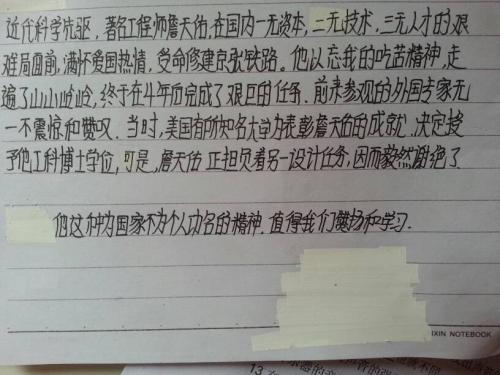 近代科学先驱，著名工程师詹天佑，在国内一无资本，二无技术，三无人才的艰
难局面前，满怀爱国热情，受命修建京张铁路。他以忘我的吃苦精神，走
遍了山山岭岭，终于在4年后完成了艰巨的任务．前来参观的外国专家无
一不震惊和赞叹．当时，美国有所知名大学为表彰詹天佑的成就，决定授
予他工科博士学位，可是，詹天佑正担负着另一设计任务，因而毅然谢绝了
他这种为国家不为个人功名的精神．值得我们赞扬和学习．
IXIN NOTEBOOK